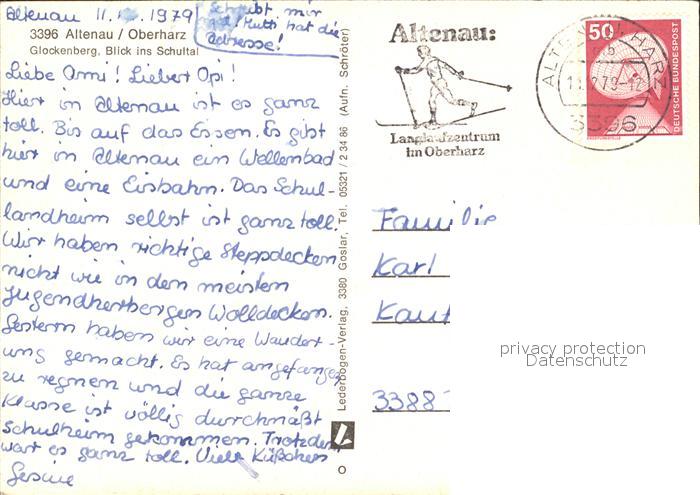 Altenau 11. 1979
Schreibt mir
mal! Mutti hat die
Adresse!
3396 Altenau / Oberharz
Glockenberg, Blick ins Schultal
Liebe Omi! Lieber Opi!
Hier in Altenau ist es ganz
toll. Bis auf das Essen. Es gibt
hier in Altenau ein Wellenbad
und eine Eisbahn. Das Schul-
landheim selbst ist ganz toll.
Wir haben richtige Steppdecken
nicht wie in den meisten
Jugendherbergen Wolldecken.
Gestern haben wir eine Wander-
ung gemacht. Es hat angefangen
zu regnen und die ganze
Klasse ist völlig durchnäßt
Schulheim gekommen. Trotzdem
war es ganz toll. Viele Küßchen
Gesine
Lederbogen-Verlag, 3380 Goslar, Tel. 05321 / 2 34 86 (Aufn. Schröter)
Altenau:
Langlaufzentrum
im Oberharz
ALTENAU, HARZ
mb
3396
50
DEUTSCHE BUNDESPOST
Familie
Karl
3388
privacy protection
Datenschutz